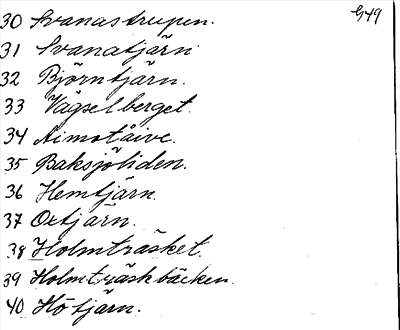 30 Svanastrupen. 549
31 Svanatjärn
32 Björntjärn.
33 Vägselberget.
34 Aimotåive.
35 Baksjöliden.
36 Hemtjärn.
37 Oxtjärn.
38 Holmträsket.
39 Holmträskbäcken.
40 Hötjärn.